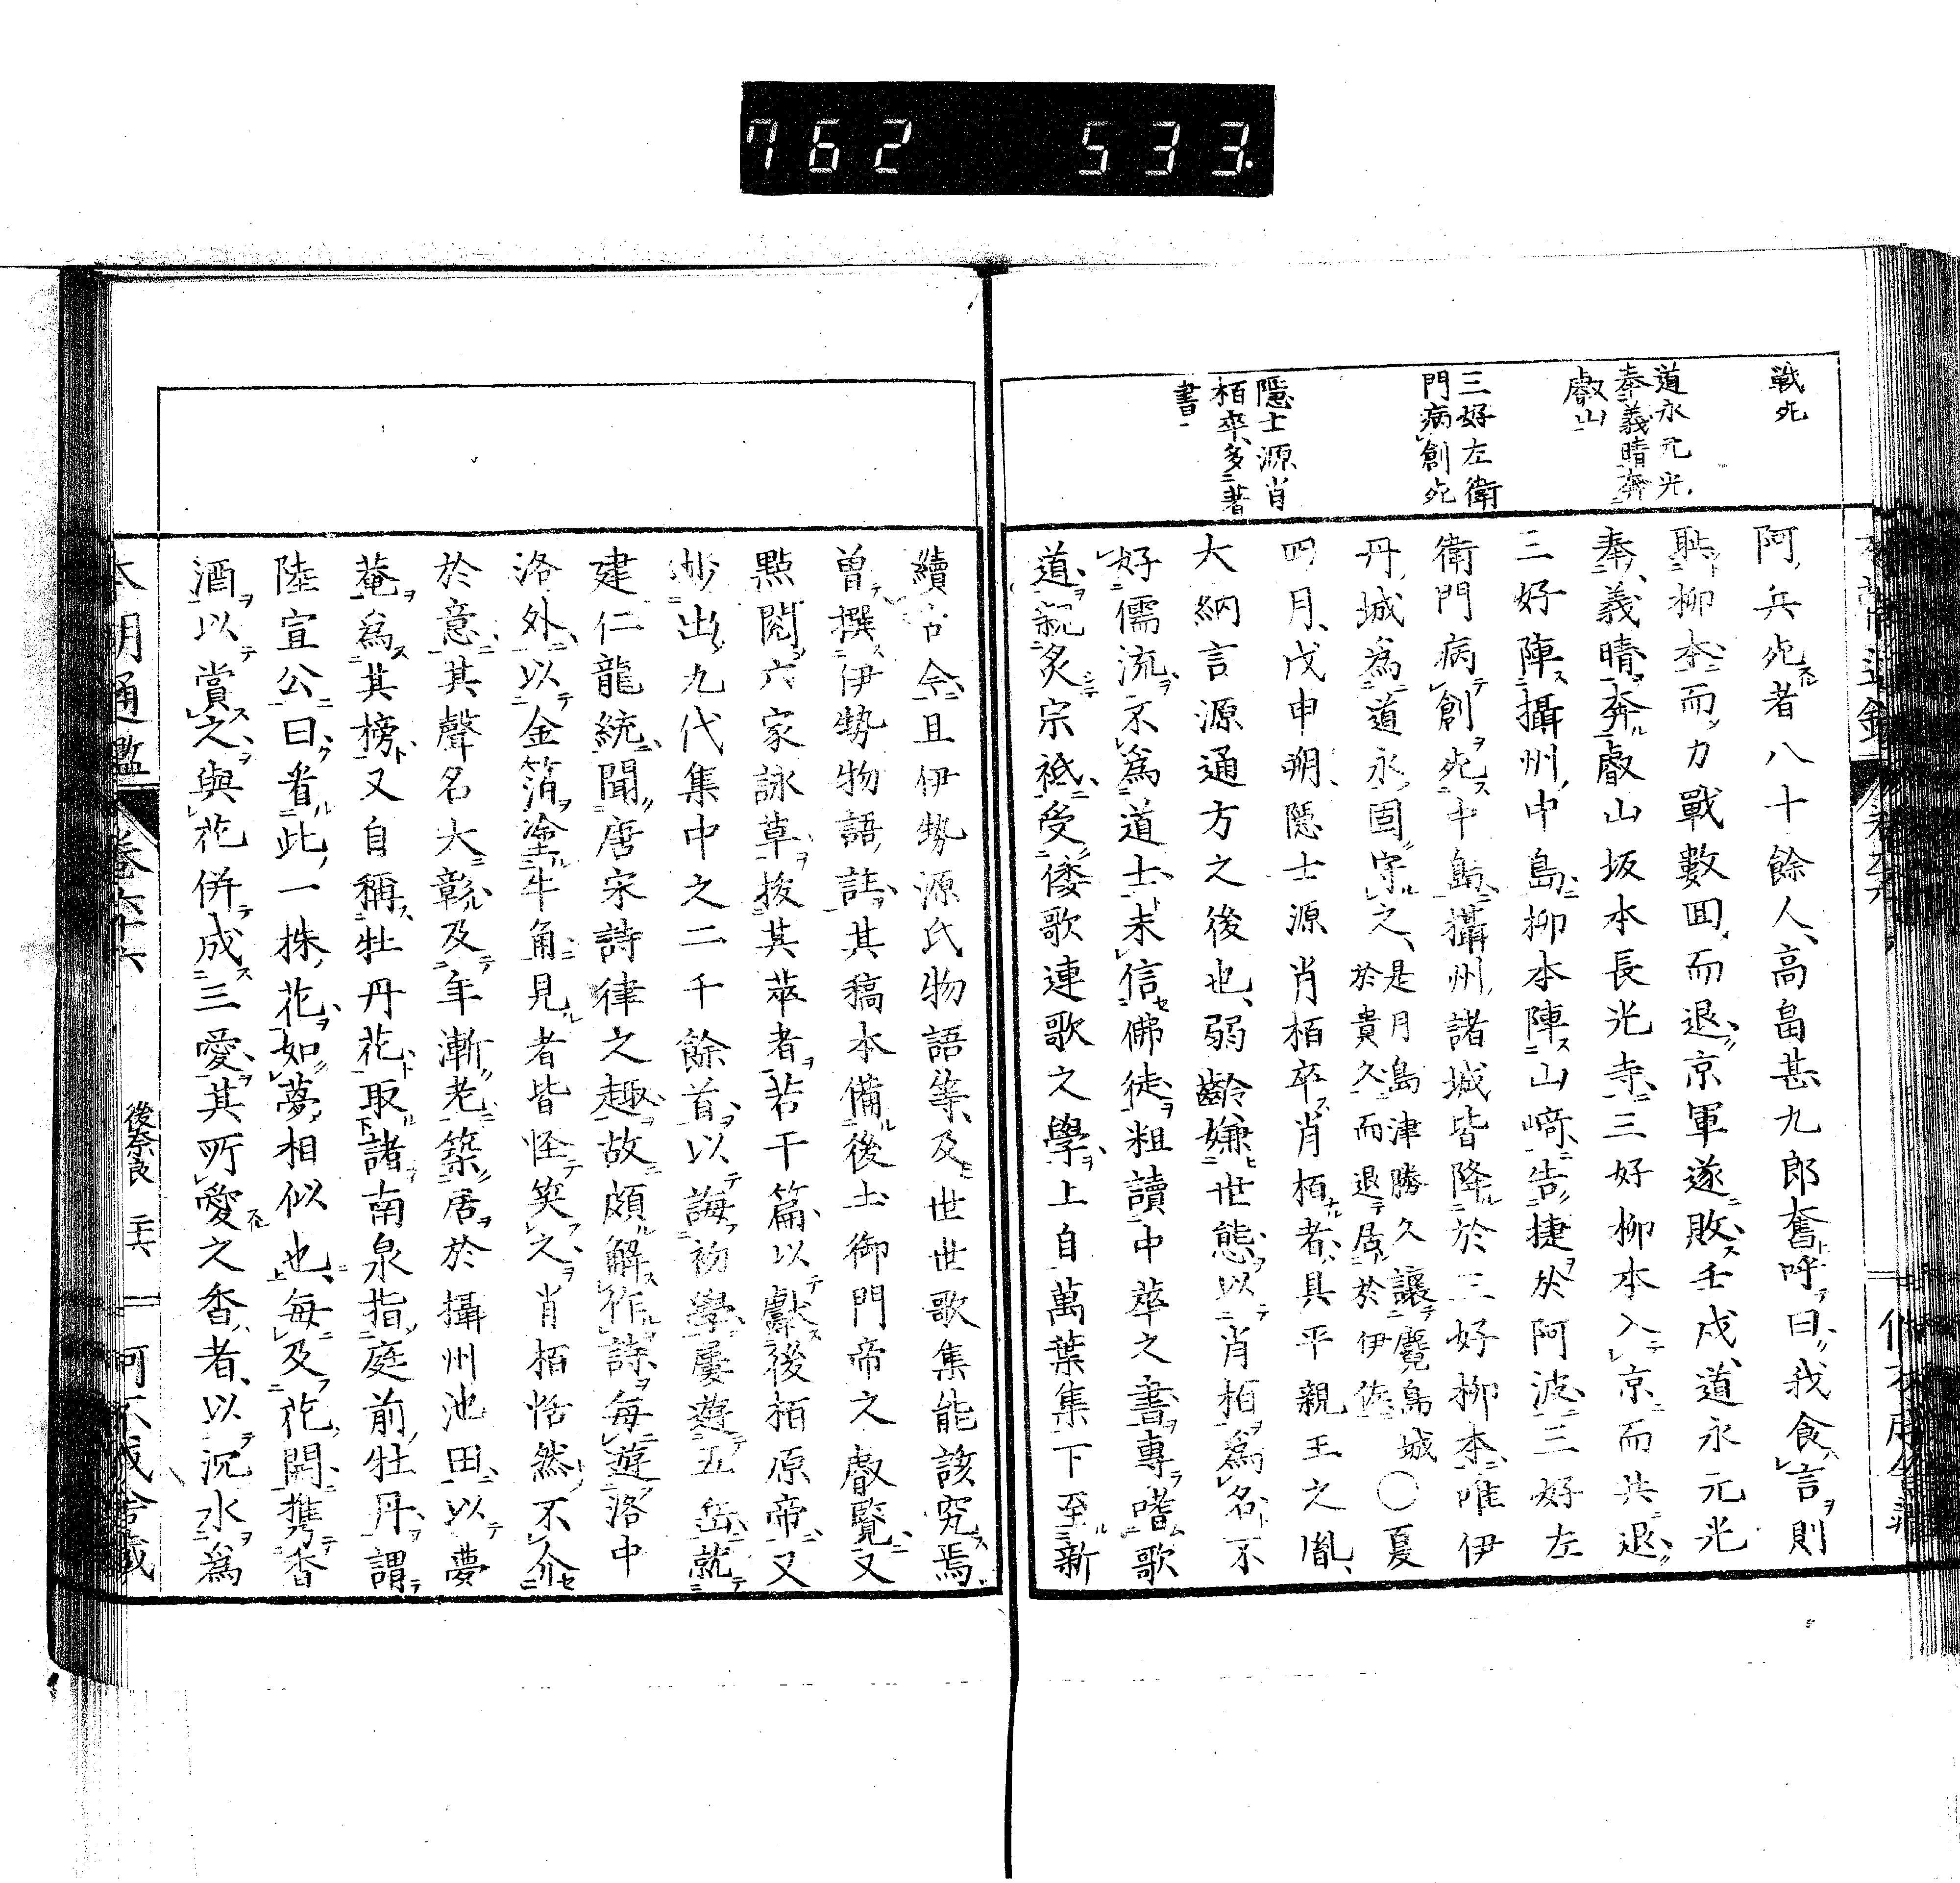 762 533.
戦死
道永元光
奉義晴奔
叡山
三好左衛
門病創死
隠士源肖
栢卒多著
書
阿兵死者八十餘人高畠甚九郎奮呼曰我食言則
耻柳本而力戰數囬而退京軍遂敗壬戌道永元光
奉義晴奔叡山坂本長光寺三好柳本入京而共退
三好陣攝州中島柳本陣山﨑告捷於阿波三好左
衛門病創死中島攝州諸城皆降於三好柳本唯伊
丹城為道永固守之是月島津勝久讓麑島城於貴久而退居於伊佐〇夏
四月戊申朔隠士源肖栢卒肖栢者具平親王之胤
大納言源通方之後也弱齡嫌世態以肖栢為名不
好儒流不為道士未信佛徒粗讀中華之書專嗜歌
道親炙宗祗受倭歌連歌之學上自萬葉集下至新
續古今且伊勢源氏物語等及世世歌集能該究焉
曽撰伊勢物語註其稿本備後土御門帝之叡覧又
點閲六家詠草拔其萃者若干篇以獻後栢原帝又
抄出九代集中之二千餘首以誨初學屢遊五岳就
建仁龍統聞唐宋詩律之趣故頗解作詩每遊洛中
洛外以金箔塗牛角見者皆怪笑之肖栢恬然不介
於意其聲名大彰及年漸老築居於攝州池田以夢
菴為其榜又自稱牡丹花取諸南泉指庭前牡丹謂
陸宣公曰看此一株花如夢相似也每及花開携香
酒以賞之與花併成三愛其所愛之香者以沉水為
本朝通鑑 卷六十六 後奈良 二十六